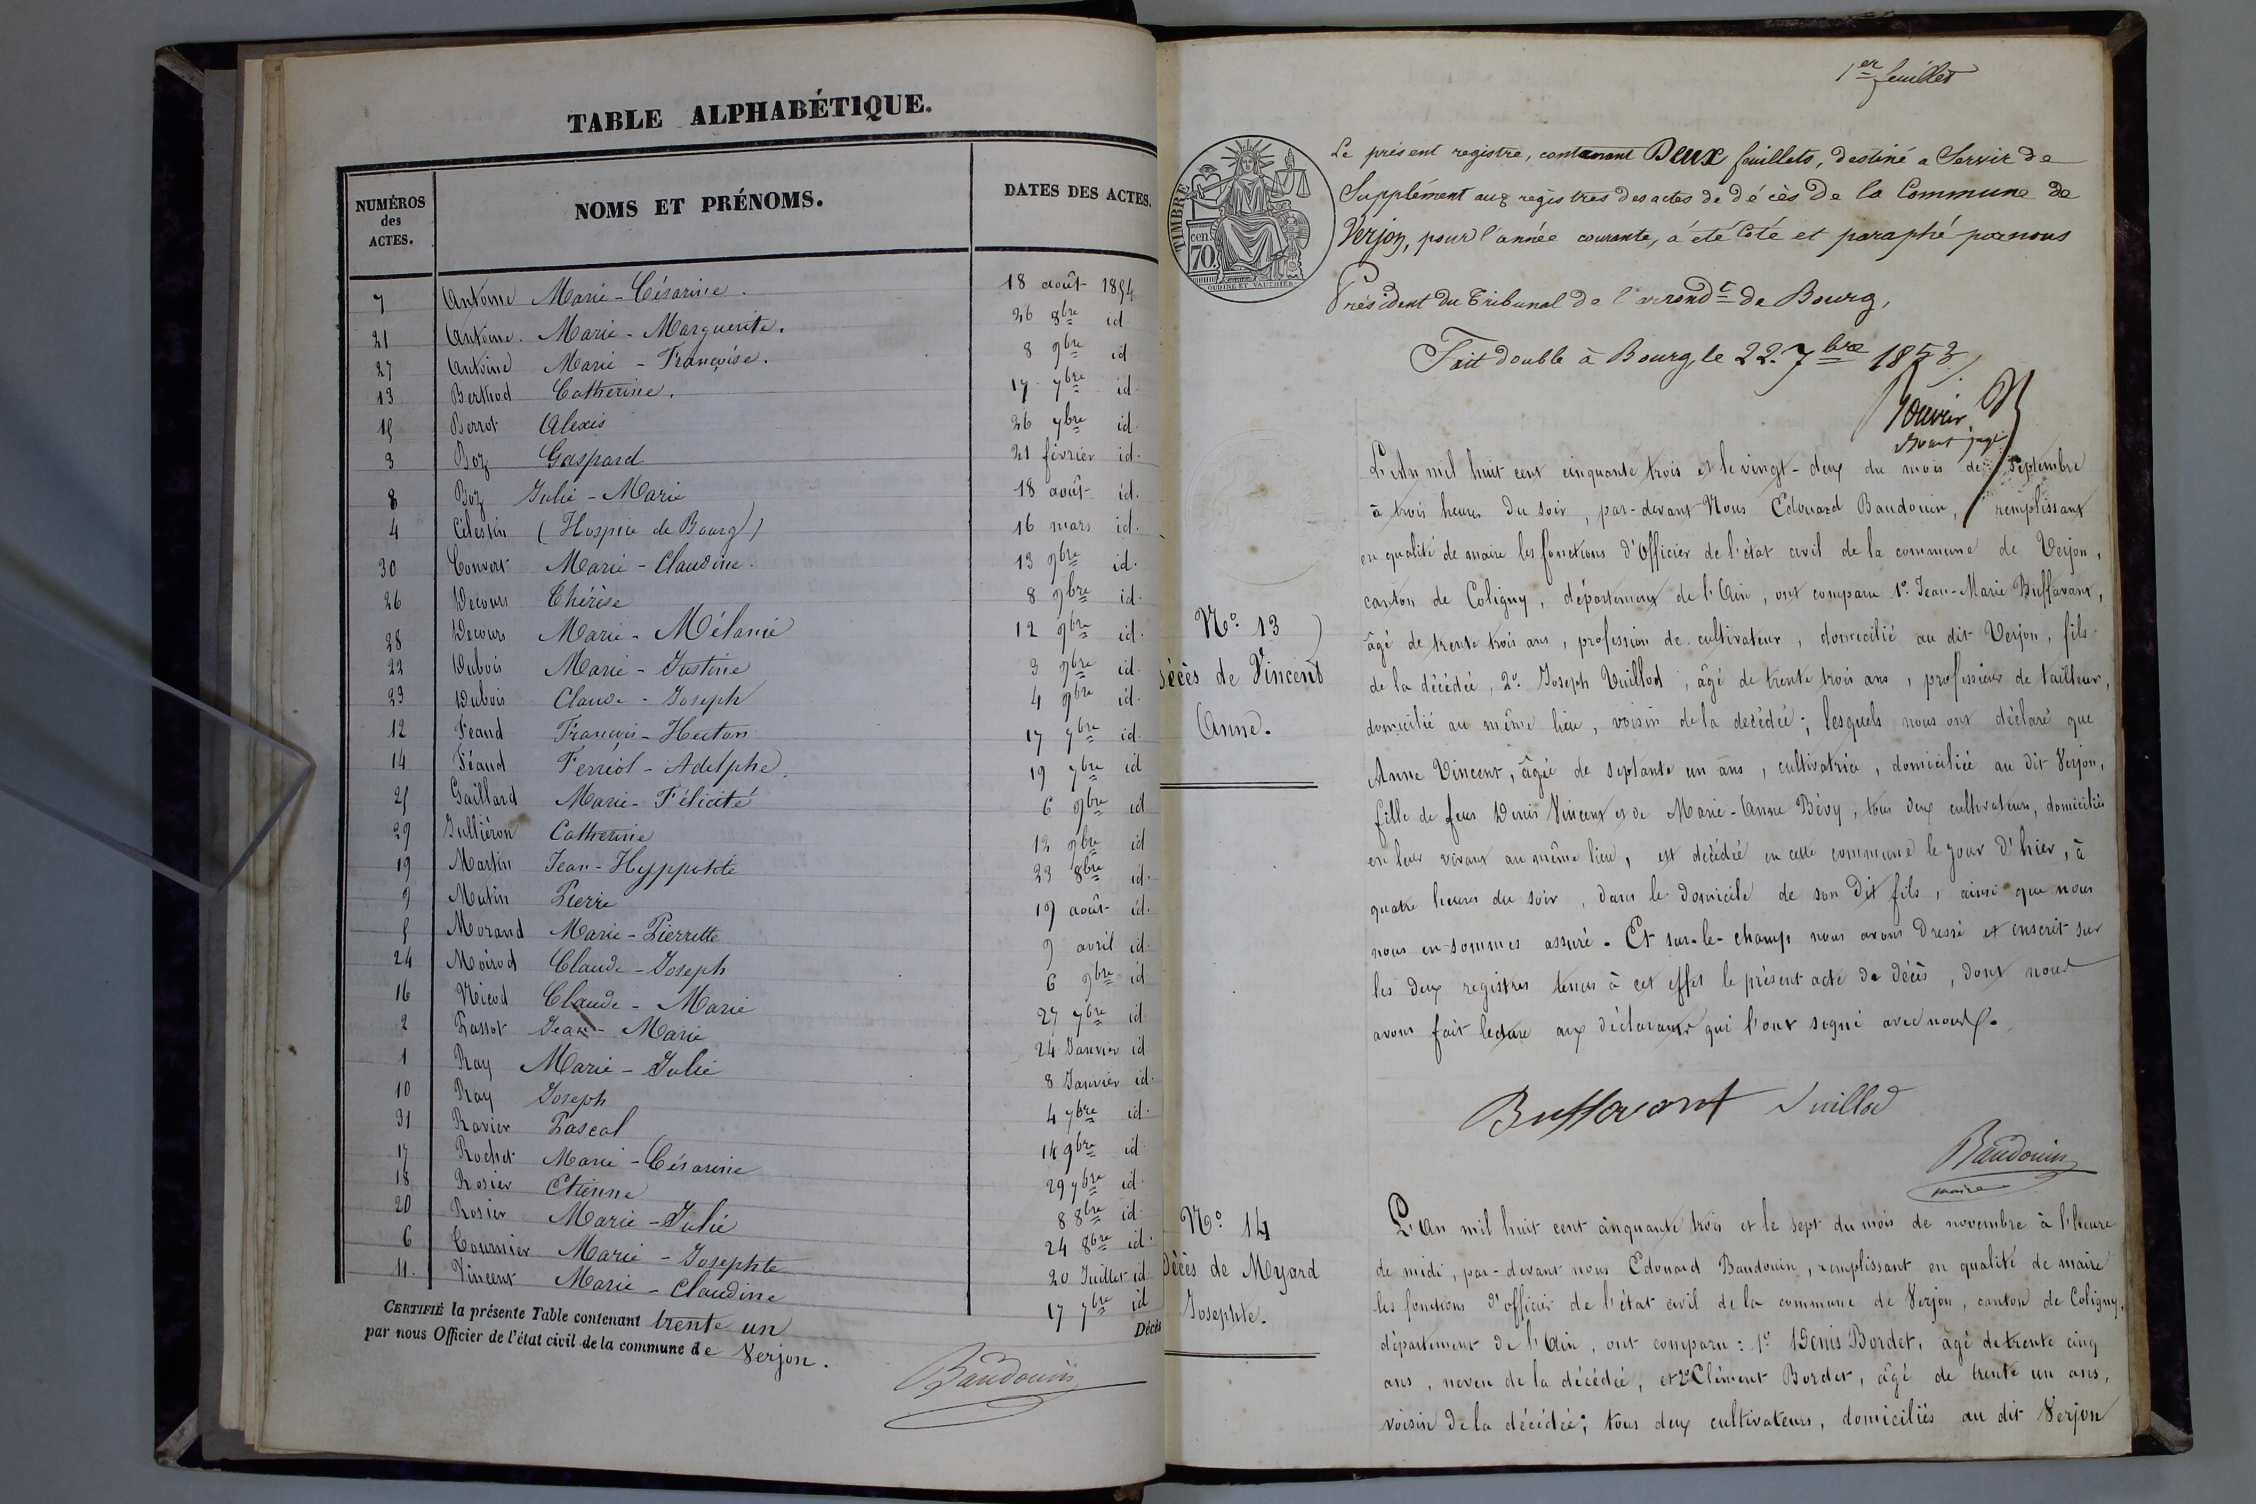 TABLE ALPHABÉTIQUE.
NUMÉROS des ACTES. NOMS ET PRÉNOMS. DATES DES ACTES.
7 Antoine Marie-Césarine. 18 août 1854
21 Antoine. Marie-Marguerite. 26 8bre id
27 Antoine Marie-Françoise. 8 9bre id
13 Berthod Catherine. 17 7bre id.
15 Berrot Alexis 26 7bre id.
3 Boz Gaspard 21 février id.
8 Boz Julie-Marie 18 août id.
4 Célestin (Hospice de Bourg) 16 mars id.
30 Convert Marie-Claudine. 13 9bre id.
26 Decours Thérèse 8 9bre id.
28 Decours Marie-Mélanie 12 9bre id.
22 Dubois Marie-Justine 3 9bre id.
23 Dubois Claude-Joseph 4 9bre id.
12 Féaud François- 17 7bre id.
14 Féaud Ferriol-Adelphe. 19 7bre id
25 Gaillard Marie-Félicité 6 9bre id
29 Julliéron Catherine 12 9bre id
19 Martin Jean-Hyppolite 23 8bre id.
9 Mutin Pierre 19 août id.
5 Morand Marie-Pierrette 9 avril id.
24 Moirod Claude-Joseph 6 9bre id
16 Nicod Claude-Marie 27 7bre id
2 Passot Jean-Marie 24 Janvier id
1 Ray Marie-Julie 8 Janvier id.
10 Ray Joseph 4 7bre id.
31 Ravier Pascal 14 9bre id.
17 Rochet Marie-Césarine 29 7bre id.
18 Rosier Etienne 8 8bre id.
20 Rosier Marie-Julie 24 8bre id.
6 Tournier Marie-Josephte 20 Juillet id
11. Vincent Marie-Claudine 17 7bre id
CERTIFIÉ la présente Table contenant trente un Décès
par nous Officier de l'état civil de la commune de Verjon.
Baudouin
1er feuillet
TIMBRE
cen. 70.
OUDINÉ ET VAUTHIER
Le présent registre, contenant Deux feuillets, destiné a Servir de
Supplément aux registres des actes de décès de la Commune de
Verjon, pour l'année courante, a été Coté et paraphé par nous
Président du Tribunal de l'arrondt de Bourg,
Fait double à Bourg, le 22. 7bre 1853
L'An mil huit cent cinquante trois et le vingt-deux du mois de Septembre
à trois heures du soir, par-devant Nous Edouard Baudouin, remplissant
en qualité de maire les fonctions d'Officier de l'état civil de la commune de Verjon,
canton de Coligny, département de l'Ain, ont comparu 1° Jean-Marie Buffavant,
N° 13
âgé de trente trois ans, profession de cultivateur, domicilié au dit Verjon, fils
Décès de Vincent
de la décédée, 2° Joseph Vuillod, âgé de trente trois ans, profession de tailleur,
Anne.
domicilié au même lieu, voisin de la décédée; lesquels nous ont déclaré que
Anne Vincent, âgée de septante un ans, cultivatrice, domiciliée au dit Verjon,
fille de feus Denis Vincent et de Marie-Anne Bévy, tous deux cultivateurs, domiciliés
en leur vivant au même lieu, est décédée en cette commune le jour d'hier, à
quatre heures du soir, dans le domicile de son dit fils, ainsi que nous
nous en sommes assuré. Et sur-le-champ nous avons dressé et inscrit sur
les deux registres tenus à cet effet le présent acte de décès, dont nous
avons fait lecture aux déclarants qui l'ont signé avec nous.
Buffavant Vuillod
Baudouin
maire
N° 14
L'An mil huit cent cinquante trois et le sept du mois de novembre à l'heure
Décès de Myard
de midi, par-devant nous Edouard Baudouin, remplissant en qualité de maire
Josephte.
les fonctions d'officier de l'état civil de la commune de Verjon, canton de Coligny,
département de l'Ain, ont comparu: 1° Denis Bordet, âgé de trente cinq
ans, neveu de la décédée, et 2° Clément Bordet, âgé de trente un ans,
voisin de la décédée; tous deux cultivateurs, domiciliés au dit Verjon